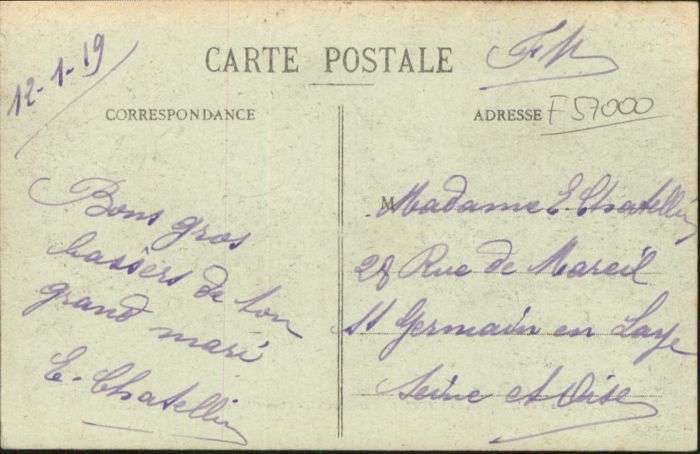 12-1-19
CARTE POSTALE
FM
CORRESPONDANCE
ADRESSE
F 57000
Bons gros
bassèrs de ton
grand mari
E. Chatellin
M Madame E. Chatellin
28 Rue de Mareil
St Germain en Laye
Seine et Oise